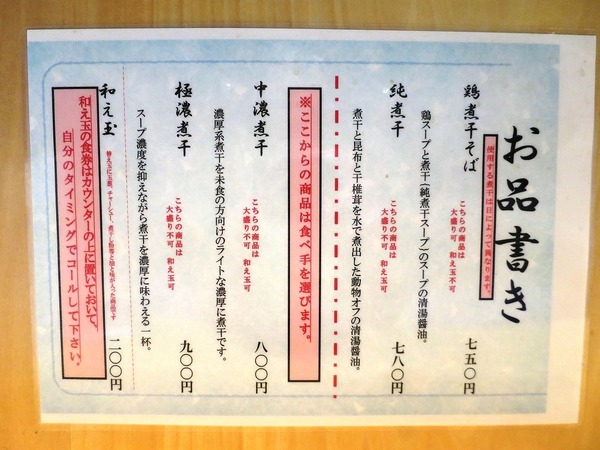 お品書き
使用する煮干は日によって異なります。
鶏煮干そば
こちらの商品は
大盛り不可 和え玉可
七五〇円
鶏スープと煮干(純煮干スープ)のスープの清湯醤油。
純煮干
こちらの商品は
大盛り不可 和え玉可
七八〇円
煮干と昆布と干椎茸を水で煮出した動物オフの清湯醤油。
※ここからの商品は食べ手を選びます。
中濃煮干
こちらの商品は
大盛り不可 和え玉可
八〇〇円
濃厚系煮干を未食の方向けのライトな濃厚に煮干です。
極濃煮干
こちらの商品は
大盛り不可 和え玉可
九〇〇円
スープ濃度を抑えながら煮干を濃厚に味わえる一杯。
和え玉
替え玉に玉葱、チャーシュー、煮干し粉等と油と味が入った商品です
二〇〇円
和え玉の食券はカウンターの上に置いておいて、
自分のタイミングでコールして下さい。